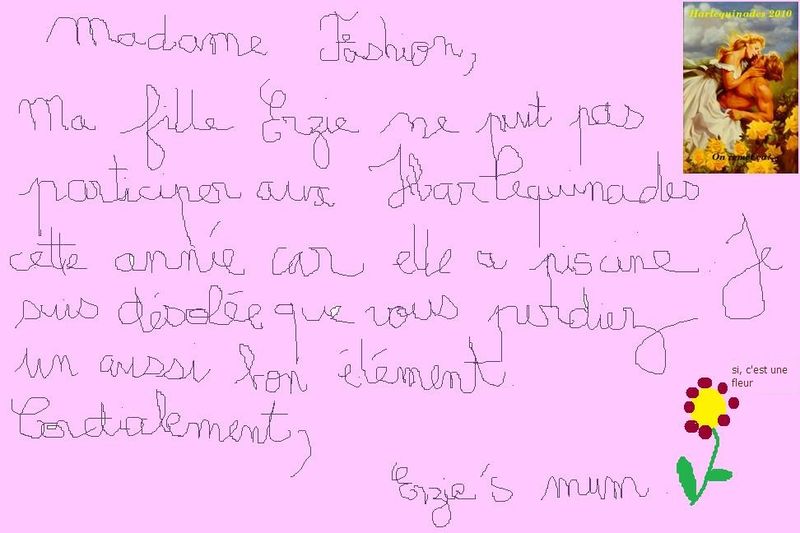 Harlequinades 2010
Madame Fashion,
Ma fille Erzie ne peut pas
participer aux Harlequinades
cette année car elle a piscine. Je
suis désolée que vous perdiez
un aussi bon élément.
Cordialement,
Erzie's mum.
si, c'est une
fleur